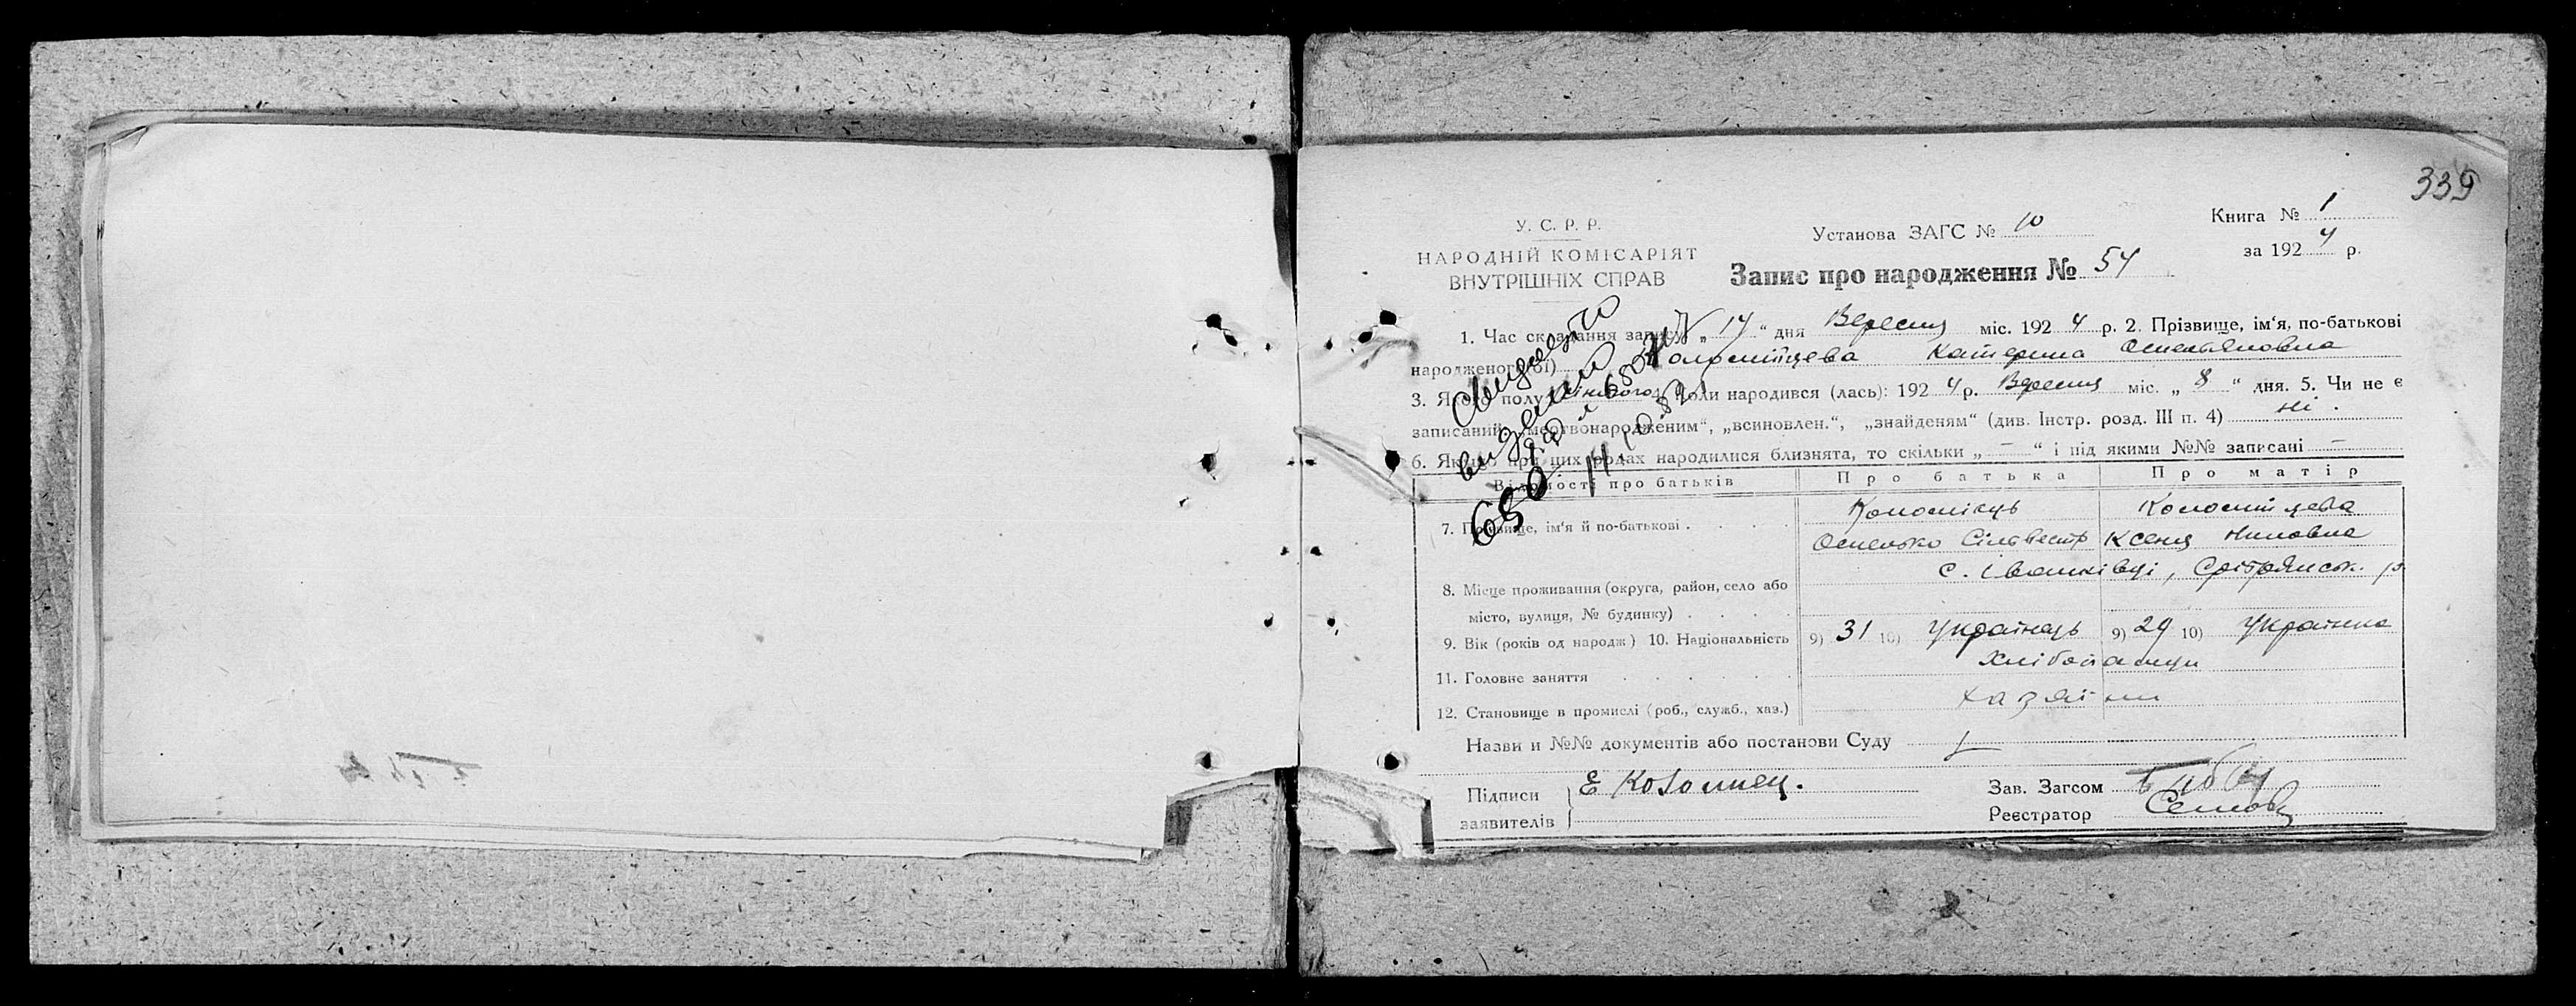 339
У. С. Р. Р.
НАРОДНІЙ КОМІСАРІЯТ
ВНУТРІШНІХ СПРАВ
Установа ЗАГС № 10
Книга № 1
за 1924 р.
Запис про народження № 54
1. Час складання запису „ 14 “ дня Вересня міс. 1924 р. 2. Прізвище, ім‘я, по-батькові
народженого(ої) Коломійцева Катерина
3. Якого полу жіночого 4. Коли народився (лась): 1924 р. Вересня міс. „ 8 “ дня. 5. Чи не є
записаний „мертвонародженим“, „всиновлен.“, „знайденям“ (див. Інстр. розд. III п. 4) ні.
6. Якщо при цих родах народилися близнята, то скільки „ — “ і під якими №№ записані —
Відомості про батьків Про батька Про матір
7. Прізвище, ім‘я й по-батькові . Коломієць Коломійцева
Ксеня
8. Місце проживання (округа, район, село або с. Івашківці, р.
місто, вулиця, № будинку) . . .
9. Вік (років од народж) 10. Національність 9) 31 10) Українець 9) 29 10) Українка
11. Головне заняття Хлібопашці
12. Становище в промислі (роб., служб., хаз.) хазяїни
Назви и №№ документів або постанови Суду —
Підписи
заявителів
Е Коломиец.
Зав. Загсом
Реєстратор